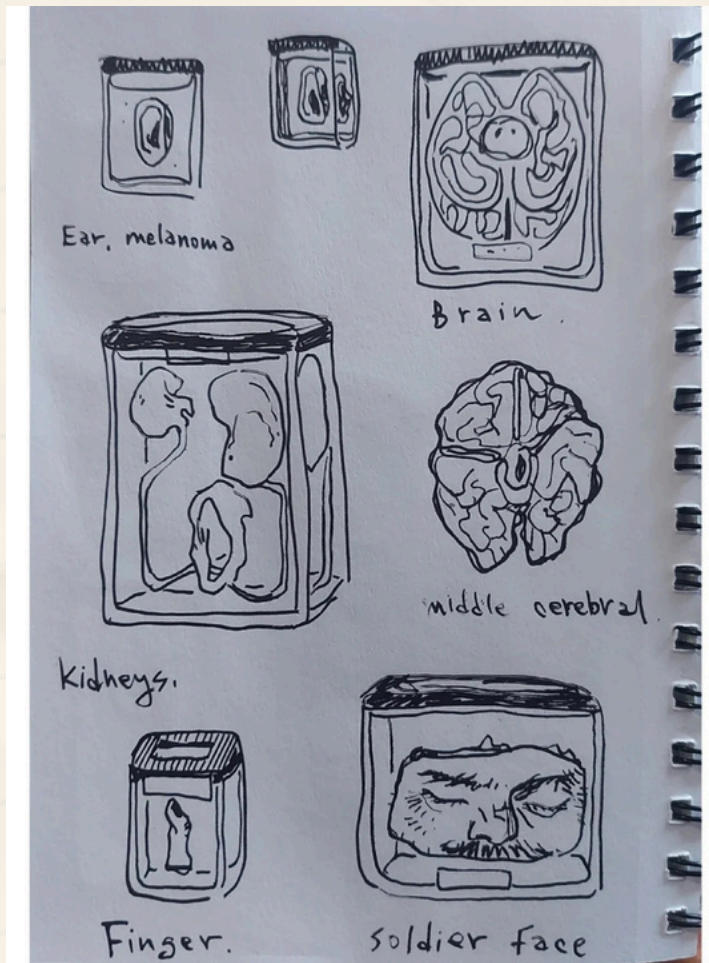 Ear, melanoma
Brain.
middle cerebral.
Kidneys.
Finger.
soldier face